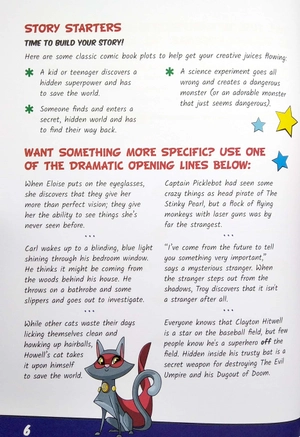 STORY STARTERS
TIME TO BUILD YOUR STORY!
Here are some classic comic book plots to help get your creative juices flowing.
A kid or teenager discovers a
hidden superpower and has
to save the world.
Someone finds and enters a
secret, hidden world and has
to find their way back.
A science experiment goes all
wrong and creates a dangerous
monster (or an adorable monster
that just seems dangerous).
WANT SOMETHING MORE SPECIFIC? USE ONE
OF THE DRAMATIC OPENING LINES BELOW:
When Eloise puts on the eyeglasses,
she discovers that they give her
more than perfect vision; they give
her the ability to see things she's
never seen before.
...
Carl wakes up to a blinding, blue light
shining through his bedroom window.
He thinks it might be coming from
the woods behind his house. He
throws on a bathrobe and some
slippers and goes out to investigate.
...
While other cats waste their days
licking themselves clean and
hawking up hairballs,
Howell's cat takes
it upon himself
to save the world.
Captain Picklebot had seen some
crazy things as head pirate of The
Stinky Pearl, but a flock of flying
monkeys with laser guns was by
far the strangest.
...
"I've come from the future to tell
you something very important,"
says a mysterious stranger. When
the stranger steps out from the
shadows, Troy discovers that it isn't
a stranger after all.
...
Everyone knows that Clayton Hitwell
is a star on the baseball field, but few
people know he's a superhero off the
field. Hidden inside his trusty bat is a
secret weapon for destroying The Evil
Umpire and his Dugout of Doom.
6